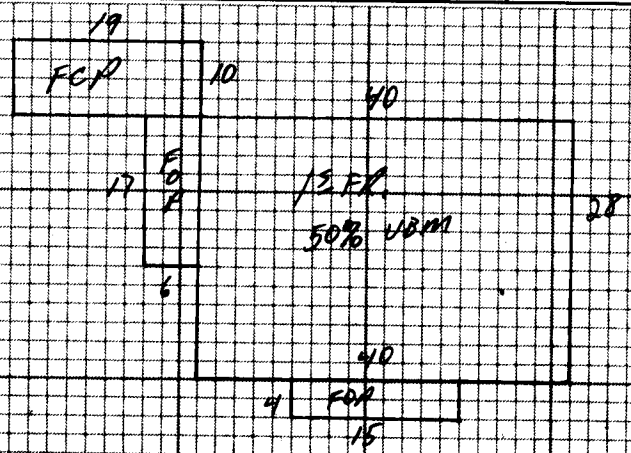 19
FCP
10
40
FOP
17
1S FR.
50% UBM
28
6
40
4
FOP
15